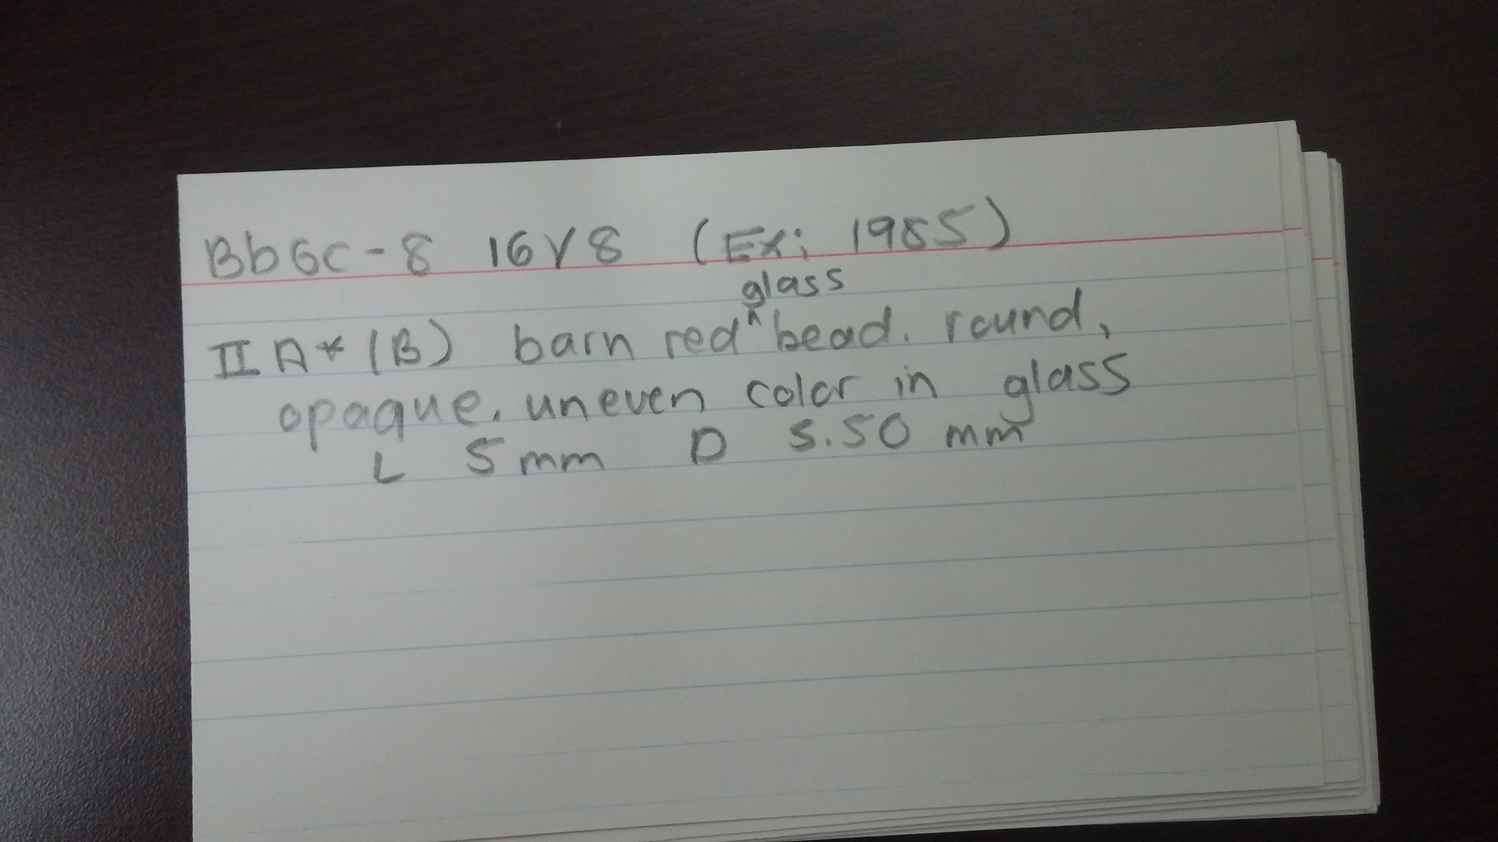 BbGc-8 16V8 (Ex: 1985)
glass
II A * (B) barn red ^ bead. round,
opaque, uneven color in glass
L 5mm D 5.50 mm